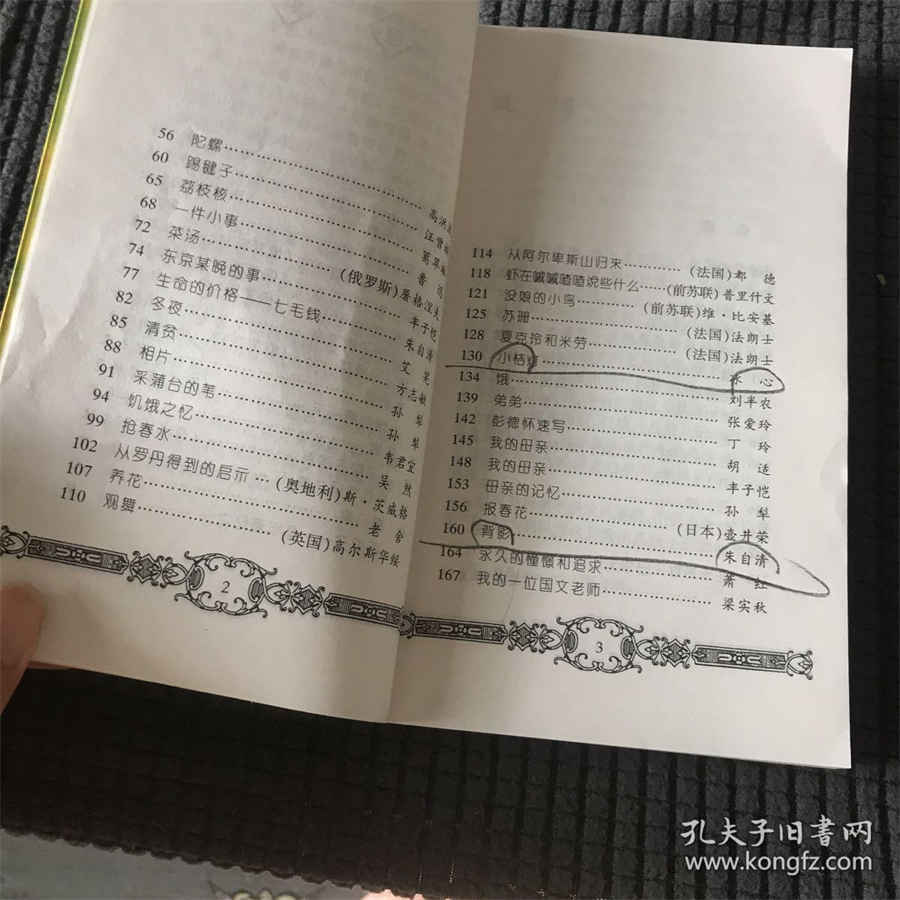 56 陀螺……………高洪
60 踢毽子……………汪曾
65 荔枝核……………葛翠
68 一件小事……………鲁迅
72 菜汤……………(俄罗斯)屠格涅夫
74 东京某晚的事……………丰子恺
77 生命的价格——七毛钱……………朱自清
82 冬夜……………艾芜
85 清贫……………方志敏
88 相片……………孙犁
91 采蒲台的苇……………孙犁
94 饥饿之忆……………韦君宜
99 抢春水……………吴然
102 从罗丹得到的启示…(奥地利)斯·茨威格
107 养花……………老舍
110 观舞……………(英国)高尔斯华绥
2
114 从阿尔卑斯山归来……………(法国)都德
118 虾在喊喊喳喳说些什么……(前苏联)普里什文
121 没娘的小鸟……………(前苏联)维·比安基
125 苏珊……………(法国)法朗士
128 夏克玲和米劳……………(法国)法朗士
130 小桔灯……………冰心
134 饿……………刘半农
139 弟弟……………张爱玲
142 彭德怀速写……………丁玲
145 我的母亲……………胡适
148 我的母亲……………丰子恺
153 母亲的记忆……………孙犁
156 报春花……………(日本)壶井荣
160 背影……………朱自清
164 永久的憧憬和追求……………萧红
167 我的一位国文老师……………梁实秋
3
孔夫子旧书网
www.kongfz.com